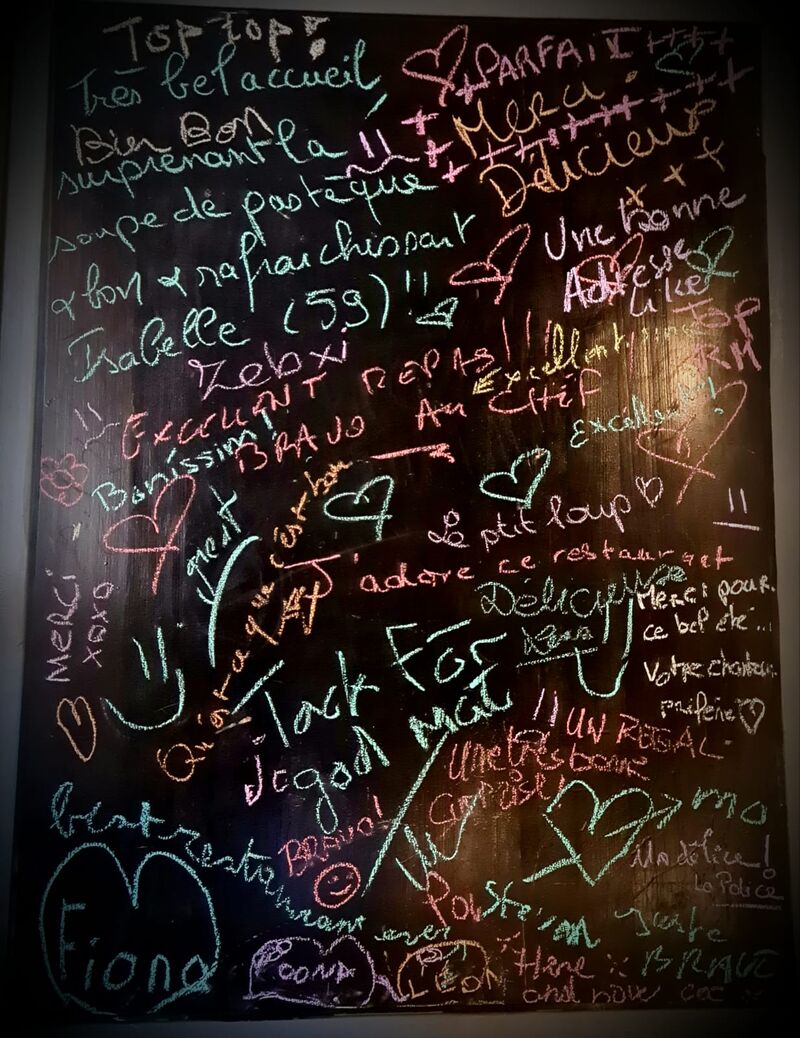 Top top!
Très bel accueil
PARFAIT ++++
Merci
Bien Bon
surprenant la
Délicieux
soupe de pastèque
& bon & rafraichissant
Une bonne
Adresse
Like
Isabelle (59)!!
TOP
RM
Zebxi
EXCELLENT REPAS!!!
Excellent
BRAVO AU CHEF
Excellent!
Bonissim!
Le ptit loup
J'adore ce restaurant
c'est bon
MERCI
xoxo
Délicieuse
Merci pour
ce bel été...
Votre chanteur
préféré
Tack För
god mat
UN REGAL
Une très bonne
BRAVO!
best restaurant ever
mo
Un délice!
La Police
Fiona
LÉON
Here
and now